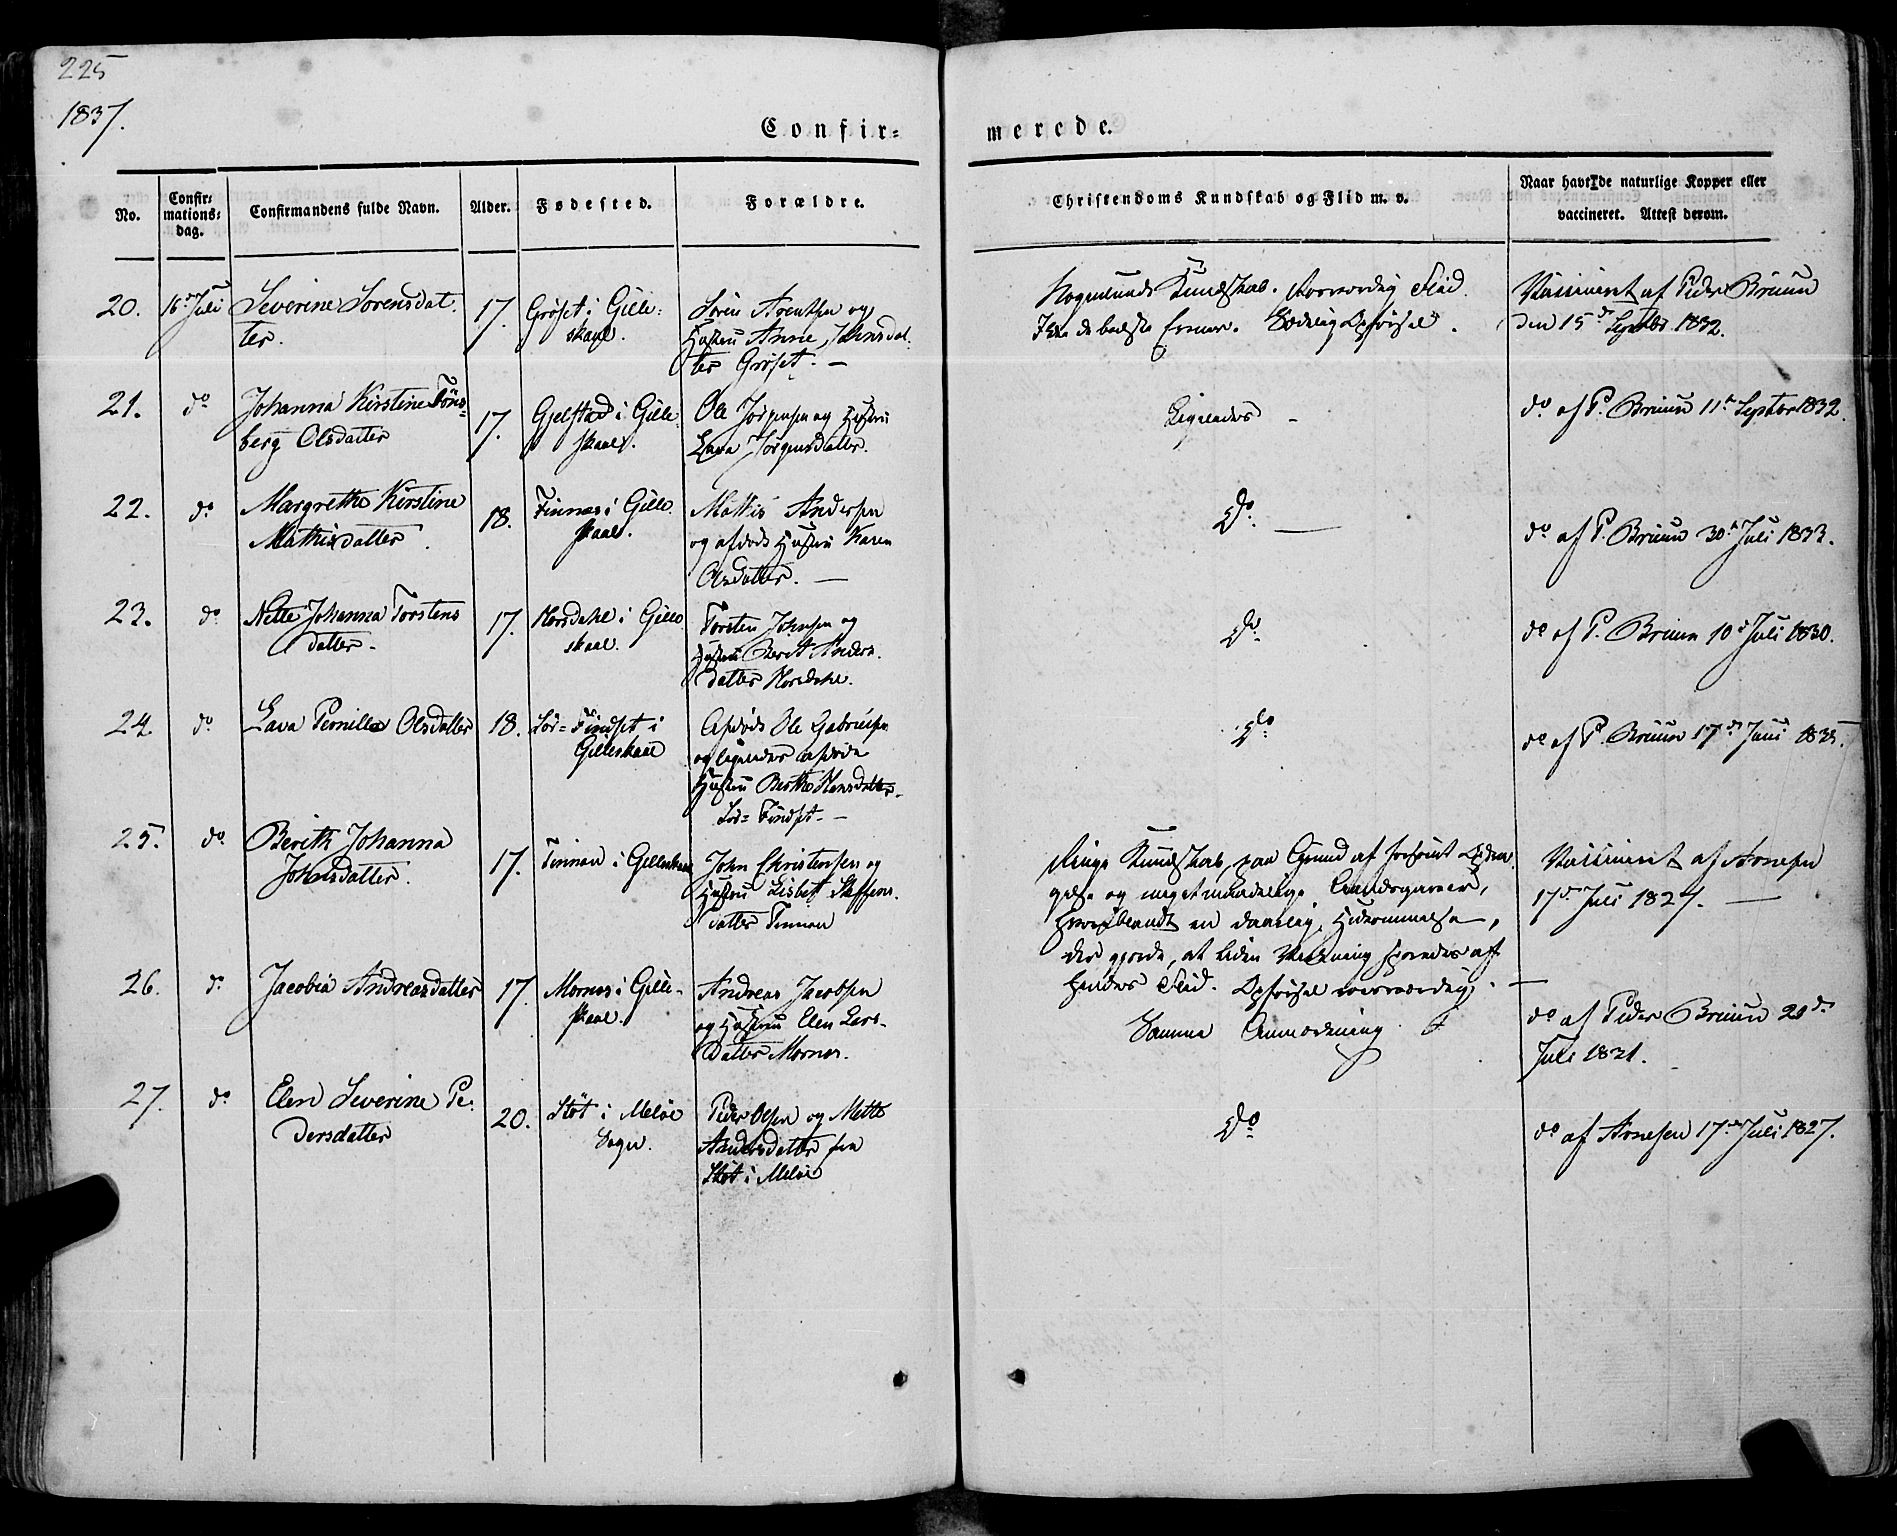 225
1837.
Confir-
merede.
No.
Confir-
mations-
dag.
Confirmandens fulde Navn.
Alder.
Fødested.
Forældre.
Christendoms Kundskab og Flid m. v.
Naar havt de naturlige Kopper eller
vaccineret. Attest derom.
20. 16de Juli Severine Sørensdat-
ter.
17. Grøset i Gille-
skaal.
Søren Arentsen og
Hustru Anne Jensdat-
ter Grøset. —
Nogenlunde Kundskab. Roesværdig Flid.
Ikke de bedste Evner. Sædelig Opførsel.
Vaccineret af Peder Bruun
den 15de Septbr 1832.
21. do Johanna Kirstine Tøns-
berg Olsdatter
17. Gjelstad i Gille-
skaal.
Ole Jørgensen og Hustru
Lava Jørgensdatter.
Ligeledes —
do af P. Bruun 11te Septbr 1832.
22. do Margrethe Kirstine
Mathisdatter.
18. Finnæs i Gille-
skaal.
Mathis Andersen
og afdøde Hustru Karen
Olsdatter. —
Do. —
do af P. Bruun 30te Juli 1833.
23. do Nille Johanna Torstens
datter.
17. Horsdahl i Gille
skaal.
Torsten Johnsen og
Hustru Berit Anders-
datter Horsdahl.
Do.
do af P. Bruun 10de Juli 1830.
24. do Lava Pernilla Olsdatter
18. Sør-Findset i
Gilleskaal
Afdøde Ole Gabrielsen
og ligeledes afdøde
Hustru Berthe Hansdatter
Sør-Findset. —
Do.
do af P. Bruun 17de Juni 1835.
25. do Berith Johanna
Johnsdatter.
17. Finnæs i Gilleskaal
John Christensen og
Hustru Lisbeth Steffens-
datter
Ringe Kundskab, paa Grund af forsømt Opdra-
gelse og meget maadelige Aandsgaver,
hvoriblandt en daarlig Hukommelse,
der gjorde, at liden Virkning havdes af
hendes Flid. Opførsel roesværdig. —
Vaccineret af Arnesen
17de Juli 1827. —
26. do Jacobia Andreasdatter
17. Mornes i Gille-
skaal.
Andreas Jacobsen
og Hustru Elen Lars-
datter Mornes.
Samme Anmærkning
do af Peder Bruun 20de
Juli 1821.
27. do Elen Severine Pe-
dersdatter
20. Støt i Meløe
Sogn.
Peder Olsen og Mette
Andersdatter fra
Støt i Meløe
Do
do af Arnesen 17de Juli 1827.